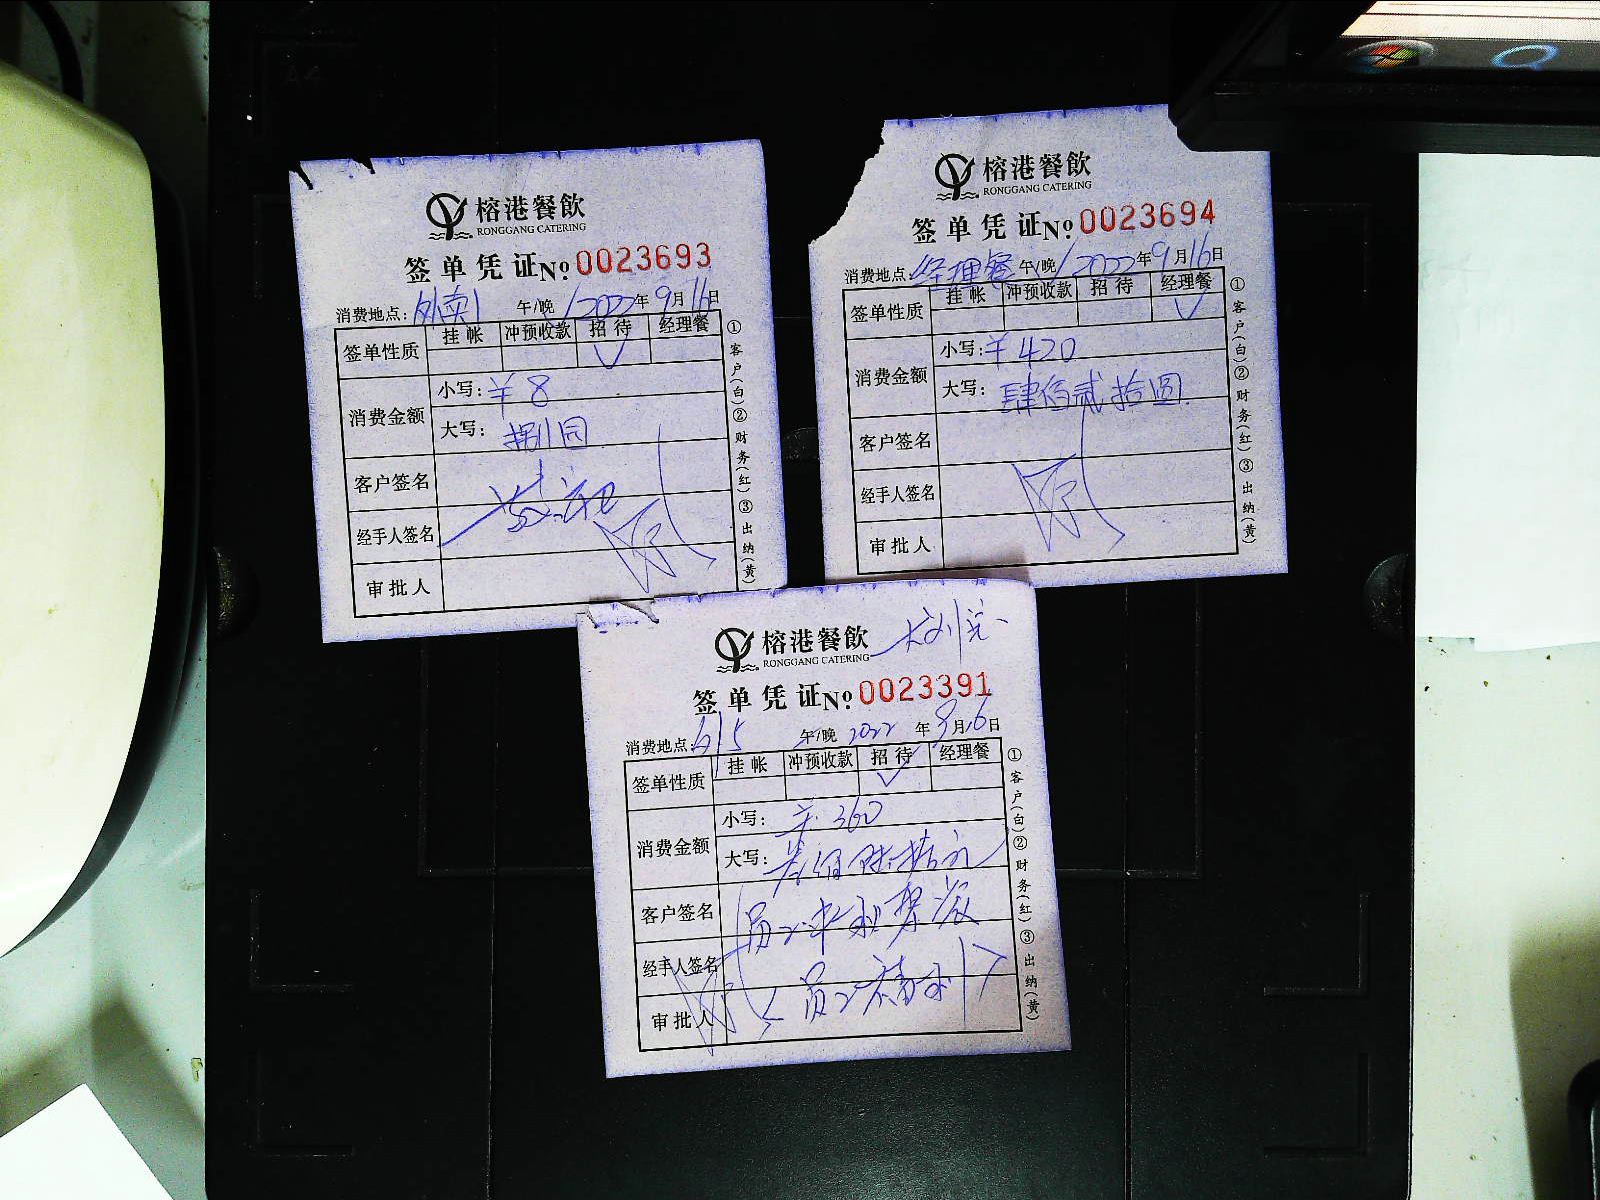 榕港餐飲
RONGGANG CATERING
签单凭证 No 0023693
消费地点: 外卖1 午/晚 / 2022年9月16日
签单性质 挂帐 冲预收款 招待 经理餐
✓
消费金额 小写: ¥8
大写: 捌圆
客户签名
经手人签名
审批人
①客户(白)②财务(红)③出纳(黄)
榕港餐飲
RONGGANG CATERING
签单凭证 No 0023694
消费地点: 经理餐 午/晚 / 2022年9月16日
签单性质 挂帐 冲预收款 招待 经理餐
✓
消费金额 小写: ¥420
大写: 肆佰贰拾圆
客户签名
经手人签名
审批人
①客户(白)②财务(红)③出纳(黄)
榕港餐飲
RONGGANG CATERING
签单凭证 No 0023391
消费地点: 午/晚 2022年9月16日
签单性质 挂帐 冲预收款 招待 经理餐
✓
消费金额 小写: ¥360
大写: 叁佰陆拾元
客户签名
经手人签名
审批人
①客户(白)②财务(红)③出纳(黄)